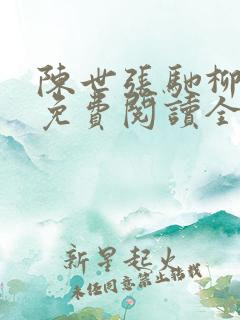 陳世張馳柳
免費閱讀全
新星起火
未经同意禁止转载